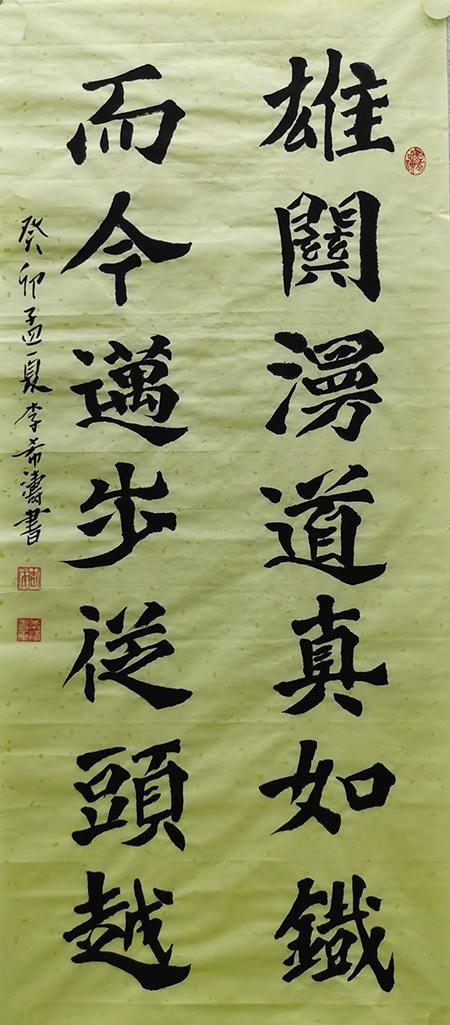 雄關漫道真如鐵
而今邁步從頭越
癸卯孟夏李希濤書